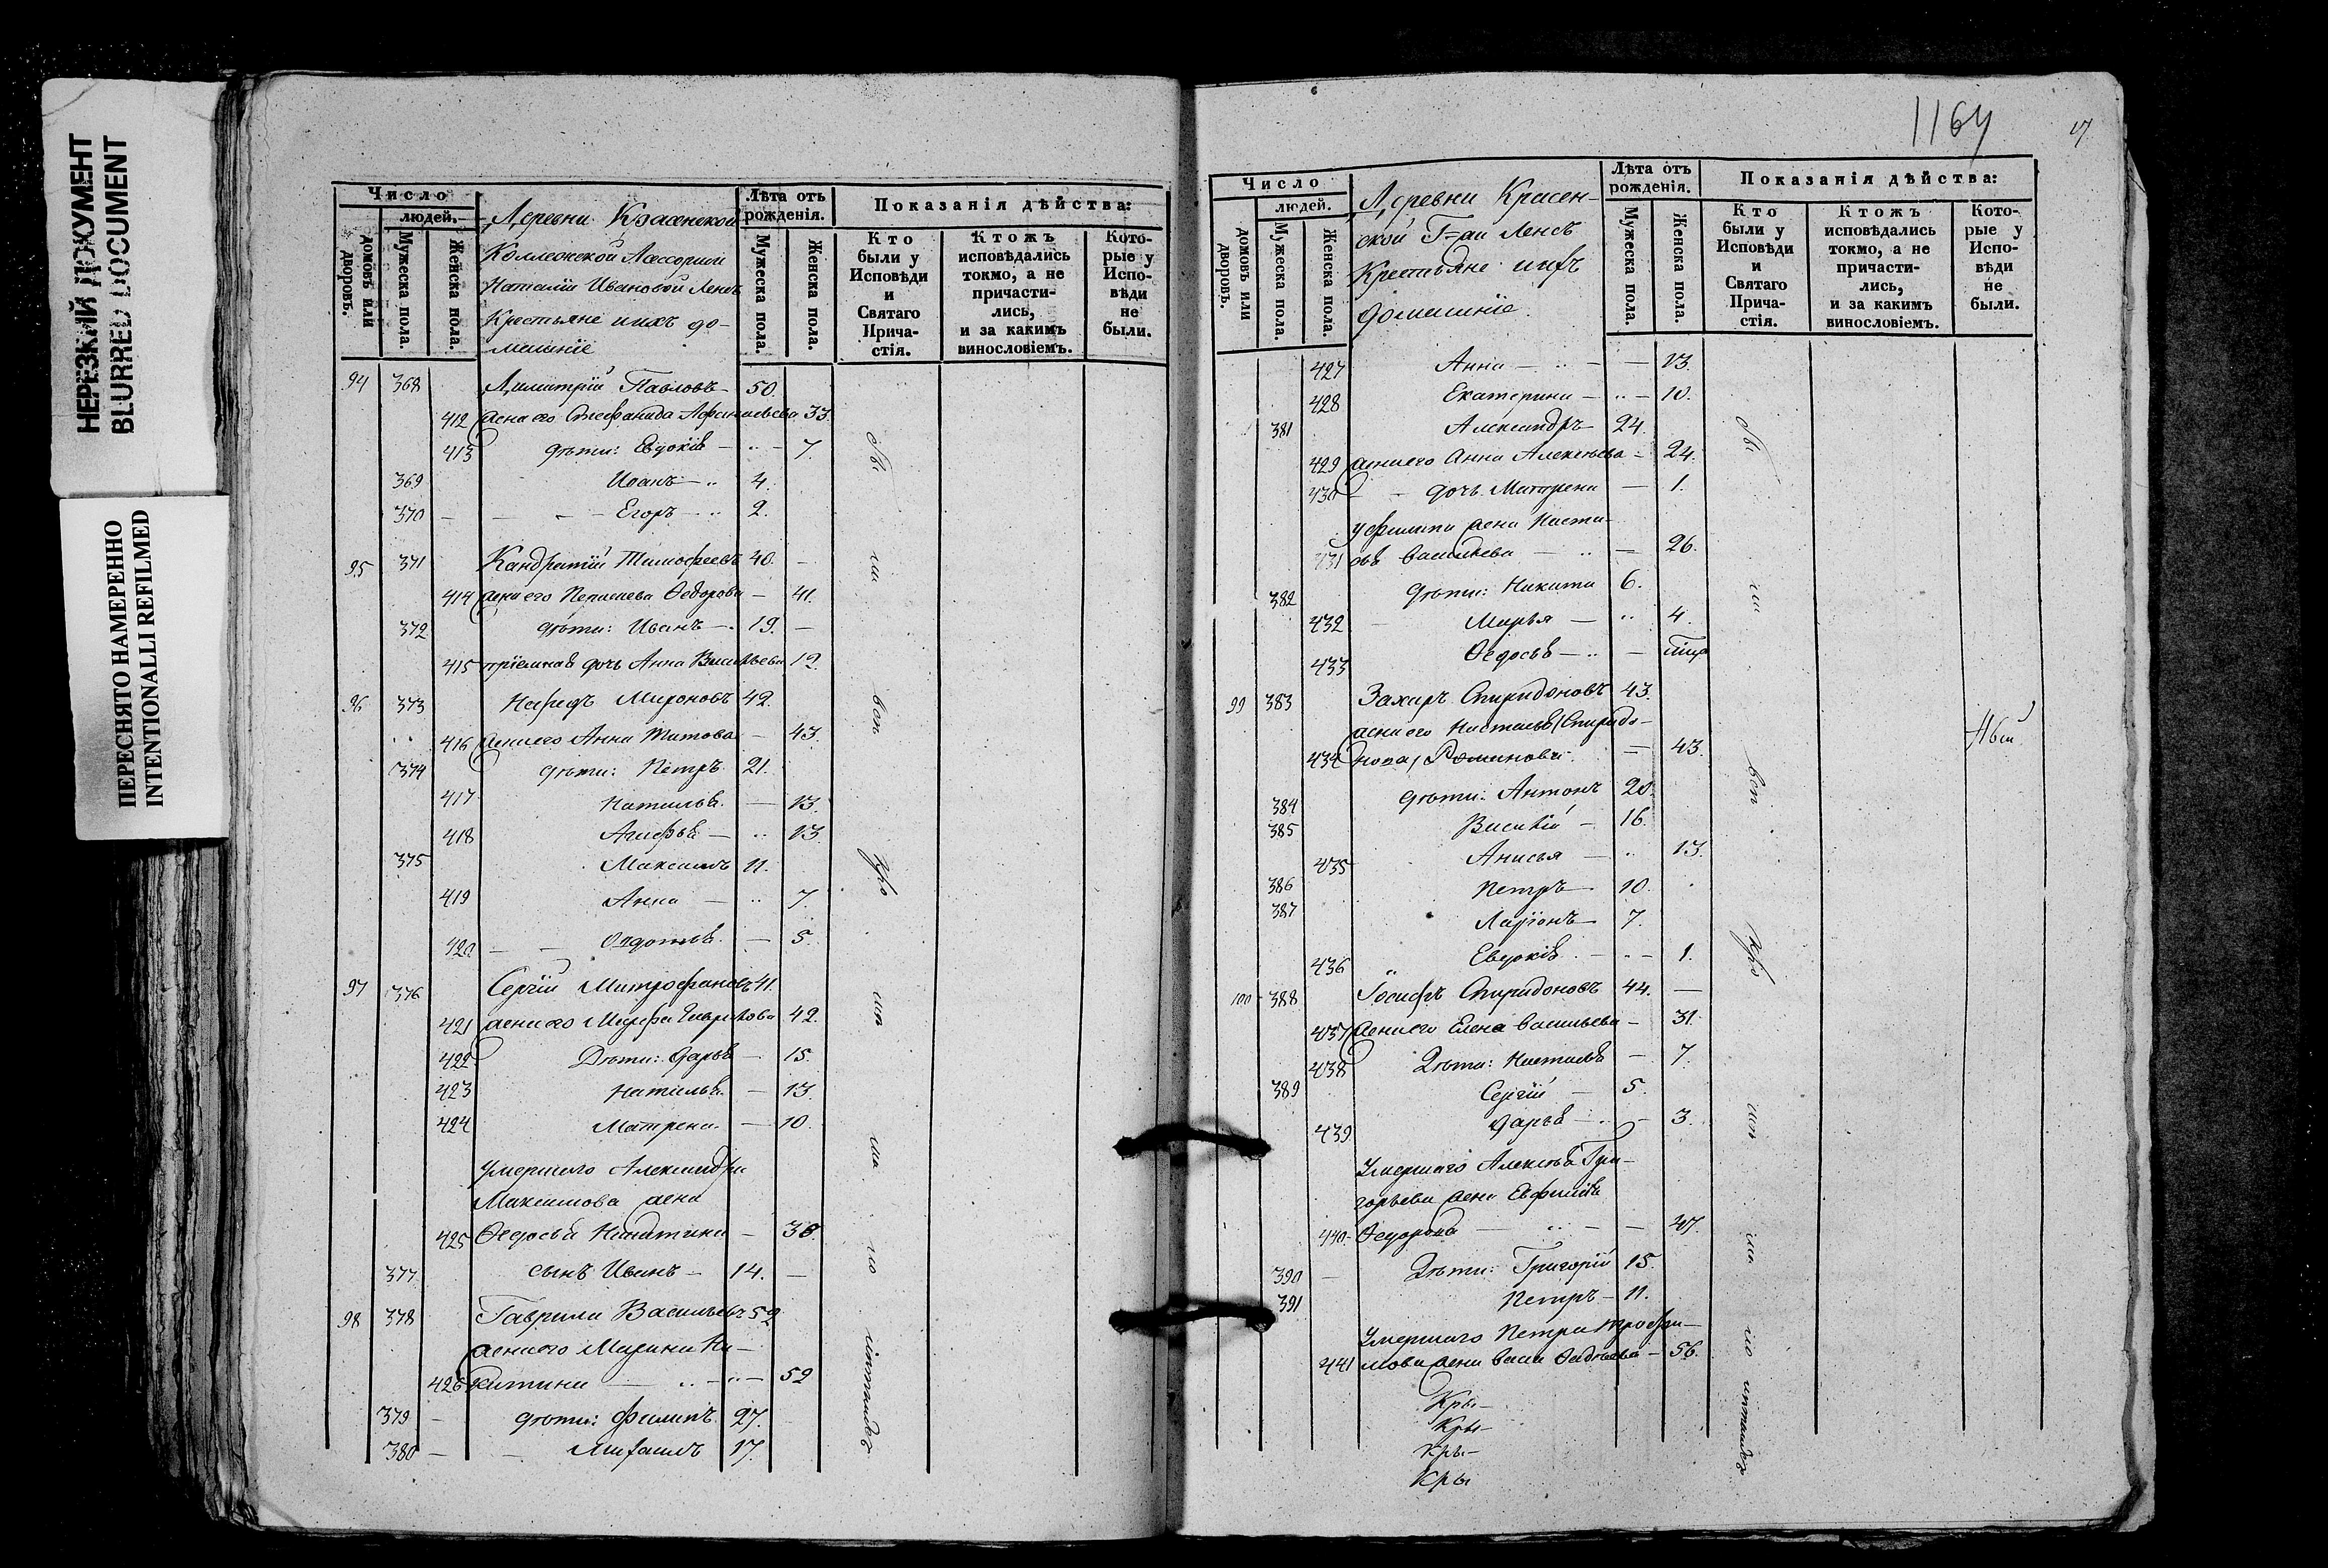 НЕРЕЗКИЙ ДОКУМЕНТ
BLURRED DOCUMENT
ПЕРЕСНЯТО НАМЕРЕННО
INTENTIONALLI REFILMED
Число
людей.
домовъ или дворовъ.
Мужеска пола.
Женска пола.
Деревни Красенской
Коллежской Ассорши
Наталіи Ивановой Ленсъ
Крестьяне ихъ до-
машніе
Лѣта отъ рожденія.
Мужеска пола.
Женска пола.
Показанія дѣйства:
Кто были у Исповѣди и Святаго Прича-стія.
Ктожъ исповѣдались токмо, а не причасти-лись, и за какимъ винословіемъ.
Кото-рые у Испо-вѣди не были.
94 368 Димитрій Павловъ 50.
412 жена его Стефанида Афанасьева 33.
413 дѣти: Евдокія 7.
369 Іоанъ 4.
370 Егоръ 2.
95 371 Кандратій Тимофеевъ 40.
414 жена его Пелагея Ѳедорова 41.
372 дѣти: Иванъ 19.
415 пріемная дочь Анна Васильева 12.
96 373 Мироновъ 42.
416 жена его Анна Титова 43.
374 дѣти: Петръ 21.
417 Наталья 13.
418 Агафья 13.
375 Максимъ 11.
419 Анна 7.
420 Авдотья 5.
97 376 Сергій Митрофановъ 41.
421 жена его Марфа Гаврилова 42.
422 Дѣти: Дарья 15.
423 Наталья 13.
424 Матрена 10.
Умершаго Александра
Максимова жена
425 Ѳедосья 38.
377 сынъ Иванъ 14.
98 378 Гаврила Васильевъ 52
жена его Марина Ни-
426 китина 52
379 дѣти: Филипъ 27.
380 Михаилъ 17.
1164
17
Число
людей.
домовъ или дворовъ.
Мужеска пола.
Женска пола.
Деревни Красен-
ской Г=жи Ленсъ
Крестьяне ихъ
домашніе.
Лѣта отъ рожденія.
Мужеска пола.
Женска пола.
Показанія дѣйства:
Кто были у Исповѣди и Святаго Прича-стія.
Ктожъ исповѣдались токмо, а не причасти-лись, и за какимъ винословіемъ.
Кото-рые у Испо-вѣди не были.
427 Анна 13.
428 Екатерина 10.
381 Александръ 24.
429 жена его Анна Алексѣева 24.
430 дочь Матрена 1.
у Филипа жена Наста-
431 сья Васильева 26.
382 дѣти: Никита 6.
432 Марья 4.
433 Ѳедосья
99 383 Захаръ Спиридоновъ 43.
жена его Настасья (Спиридо-
434 нова) Романова 43.
384 дѣти: Антонъ 20
385 Василій 16.
435 Анисья 13.
386 Петръ 10.
387 Ларіонъ 7.
436 Евдокія 1.
100 388 Іосифъ Спиридоновъ 44.
437 жена его Елена Васильева 31.
438 Дѣти: Настасья 7.
389 Сергій 5.
439 Дарья 3.
Умершаго Алексѣя Гри-
горьева жена Евфимія
440 Ѳедорова 47.
390 Дѣти: Григорій 15.
391 Петръ 11.
Умершаго Петра Трофи-
441 мова жена 56.
Кры-
Кры-
Кры-
Кры